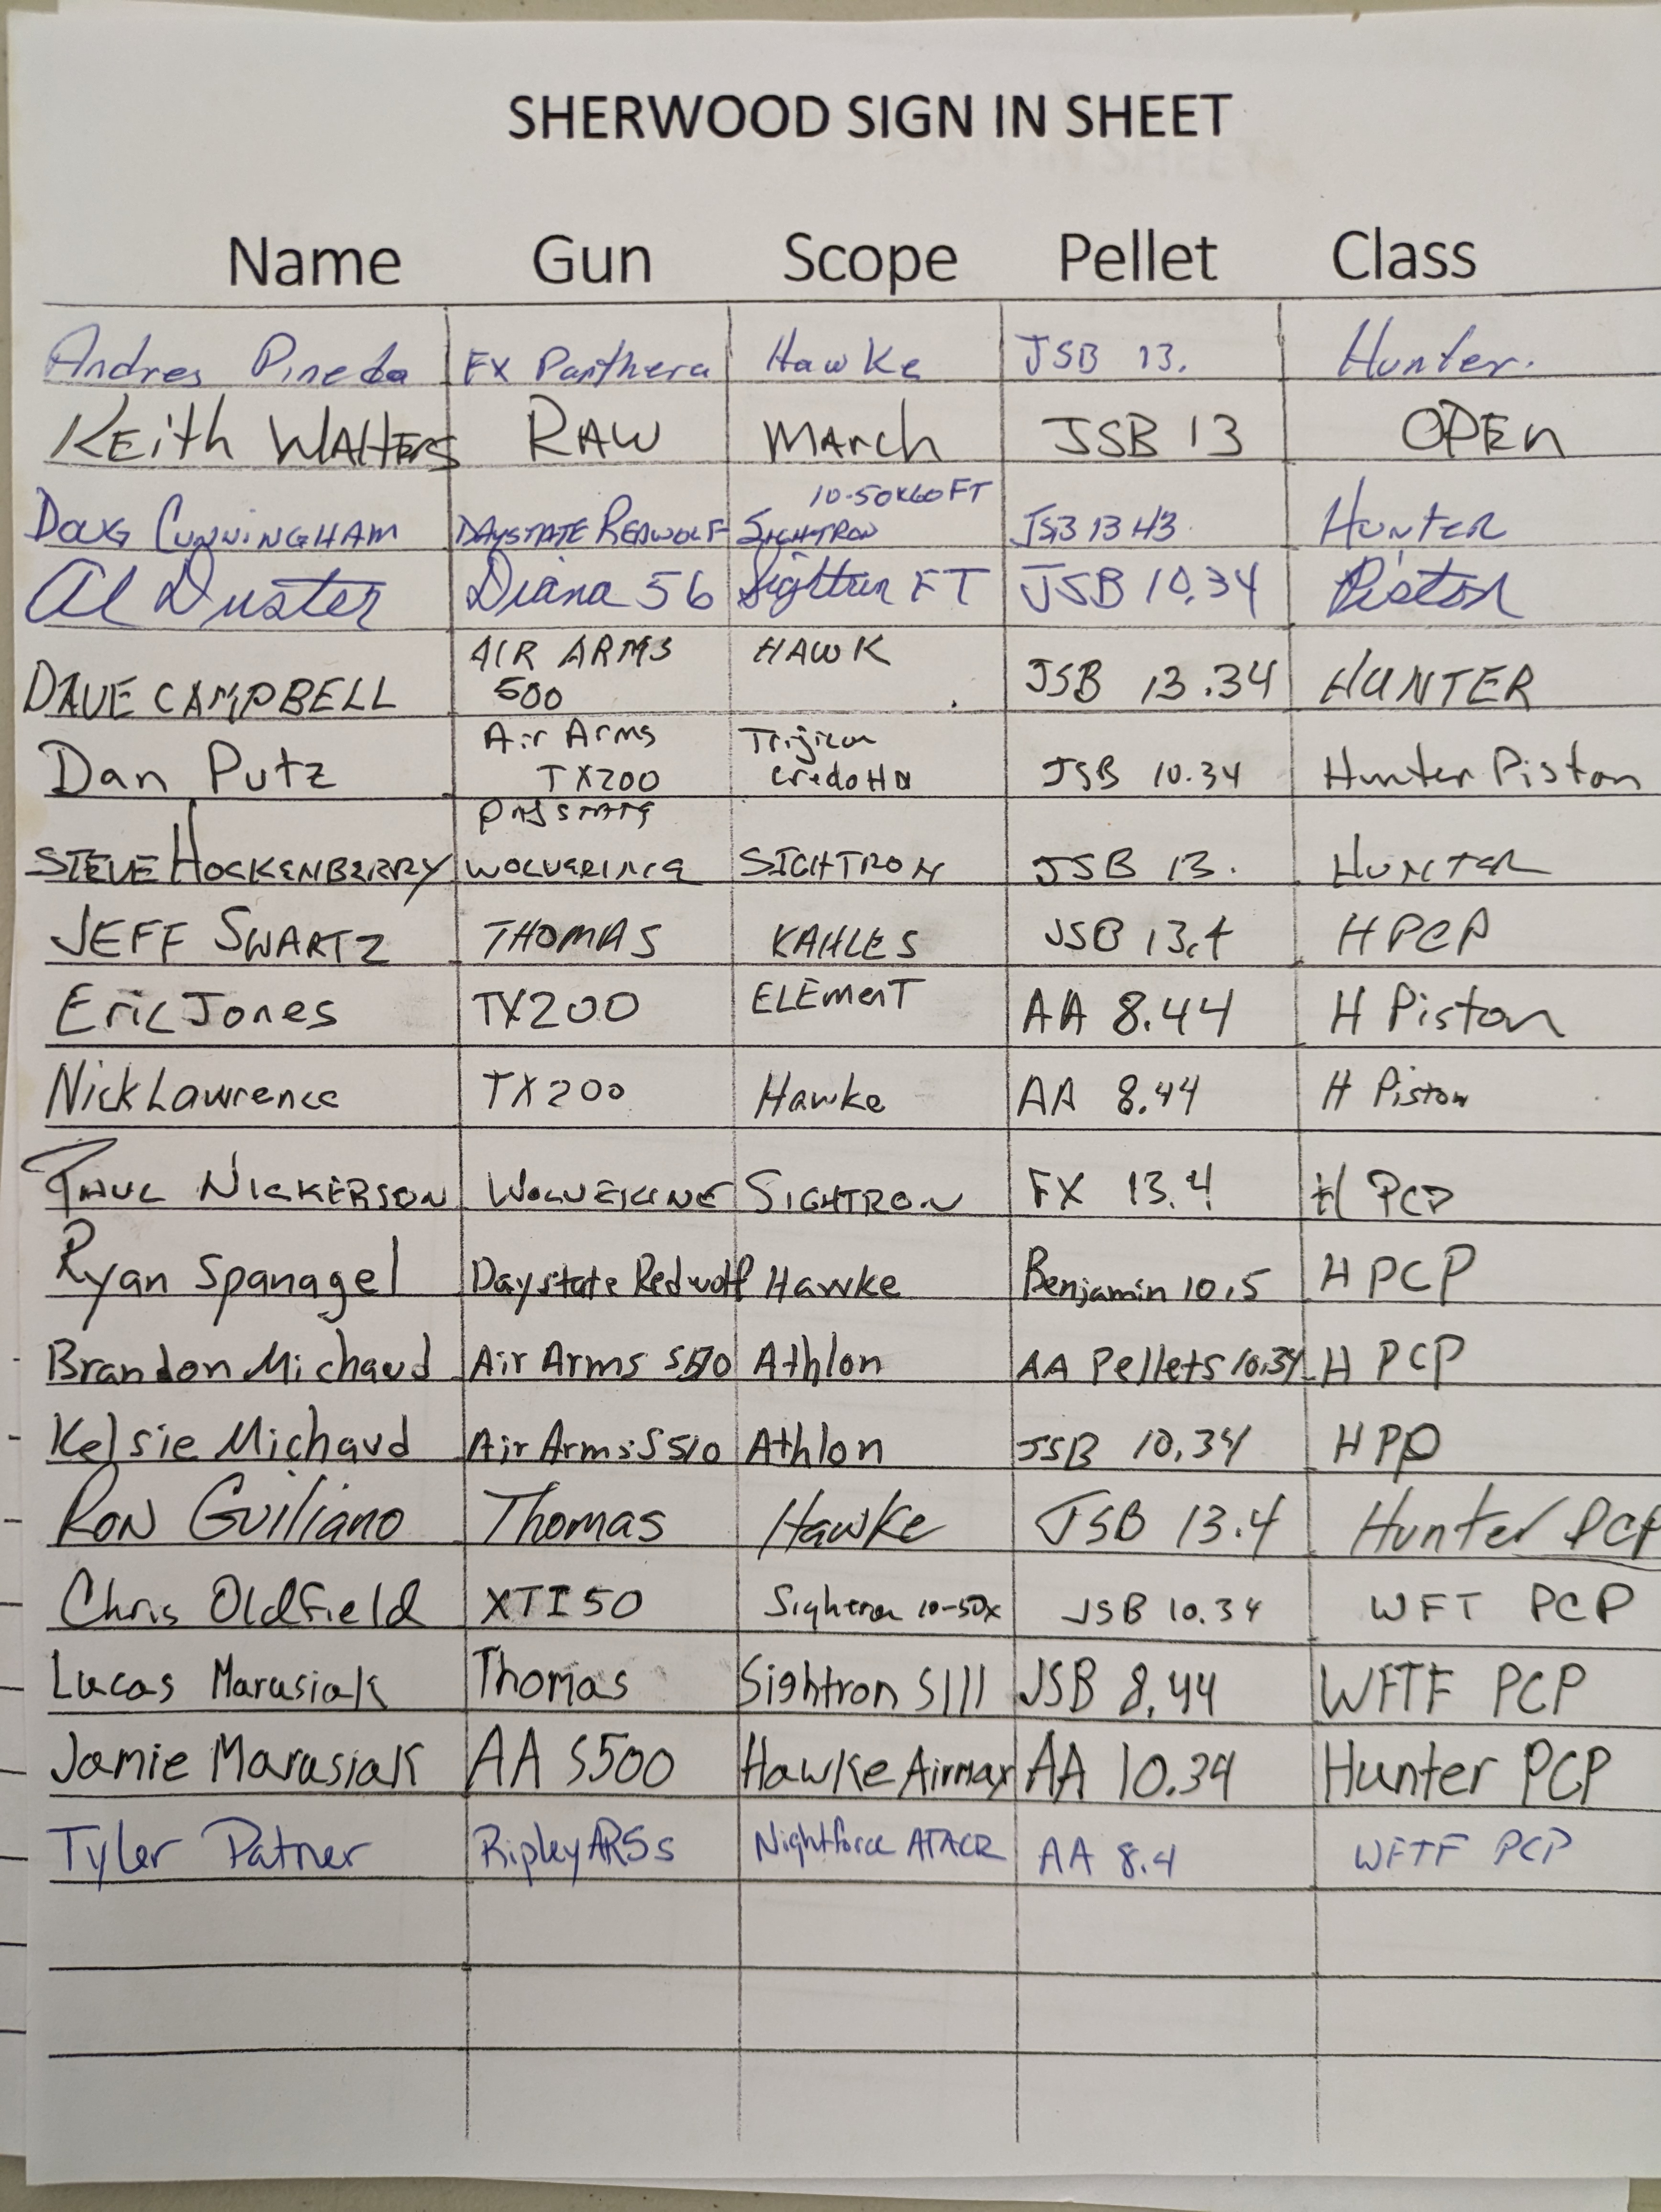 SHERWOOD SIGN IN SHEET
Name Gun Scope Pellet Class
Andres Pineda FX Panthera Hawke JSB 13. Hunter.
KEith WAltERS RAW MArch JSB 13 OPEn
10-50x60 FT
DOUG CUNNINGHAM DAYSTATE REDWOLF SIGHTRON JSB 13 43 HUNTER
Al Duster Diana 56 Sightron FT JSB 10.34 Piston
AIR ARMS HAWK
DAVE CAMPBELL 500 JSB 13.34 HUNTER
Air Arms Trijicon
Dan Putz TX200 Credo HD JSB 10.34 Hunter Piston
DAYSTATE
STEVE HOCKENBERRY WOLVERINE SIGHTRON JSB 13. HUNTER
JEFF SWARTZ THOMAS KAHLES JSB 13.4 H PCP
Eric Jones TX200 ELEmenT AA 8.44 H Piston
Nick Lawrence TX200 Hawke AA 8.44 H Piston
PAUL NICKERSON WOLVERINE SIGHTRON FX 13.4 H PCP
Ryan Spanagel Daystate Redwolf Hawke Benjamin 10.5 H PCP
Brandon Michaud Air Arms S510 Athlon AA Pellets 10.34 H PCP
Kelsie Michaud Air Arms S510 Athlon JSB 10.34 H
RON Guiliano Thomas Hawke JSB 13.4 Hunter PCP
Chris Oldfield XTI50 Sightron 10-50x JSB 10.34 WFT PCP
Lucas Marasiak Thomas Sightron SIII JSB 8.44 WFTF PCP
Jamie Marasiak AA S500 Hawke Airmax AA 10.34 Hunter PCP
Tyler Patner Ripley AR5s Nightforce ATACR AA 8.4 WFTF PCP